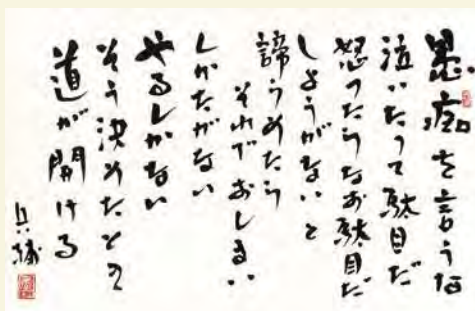 愚痴を言うな
泣いたって駄目だ
怒ったらなお駄目だ
しようがないと
諦らめたら
それでおしまい
しかたがない
やるしかない
そう決めたとき
道が開ける